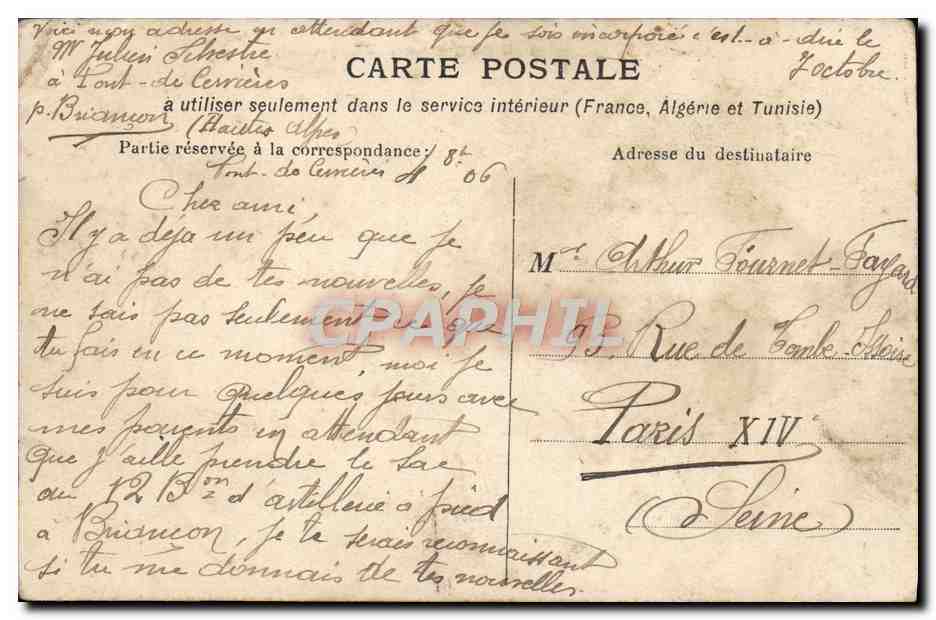 Voici mon adresse en attendant que je sois incorporé c'est-à-dire le
7 octobre.
Mr Julien Silvestre
à Pont-de Cervières
p. Briançon
(Hautes Alpes
CARTE POSTALE
à utiliser seulement dans le service intérieur (France, Algérie et Tunisie)
Partie réservée à la correspondance:
Adresse du destinataire
Pont-de Cervières 06
Cher ami,
Il y a déja un peu que je
n'ai pas de tes nouvelles, je
ne sais pas seulement ce que
tu fais en ce moment, moi je
suis pour quelques jours avec
mes parents en attendant
que j'aille prendre le sac
au 12 Bon d'artillerie à pied
à Briançon, je te serais reconnaissant
si tu me donnais de tes nouvelles.
M Arthur Fournet-Fayard
93, Rue de Tombe-Issoire
Paris XIVe
(Seine)
CPAPHIL